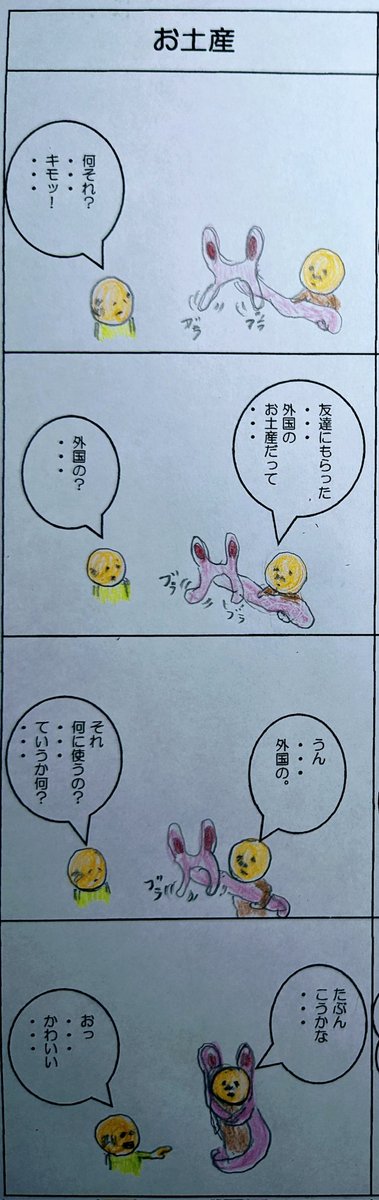 お土産
何それ？
・・・
キモッ！
・・・
ブラ
ブラ
友達にもらった
・・・
外国の
お土産だって
・・・
外国の？
・・・
ブラ
ブラ
うん
・・・
外国の。
それ
何に使うの？
・・・
ていうか何？
・・・
ブラ
たぶん
こうかな
・・・
おっ
・・・
かわいい